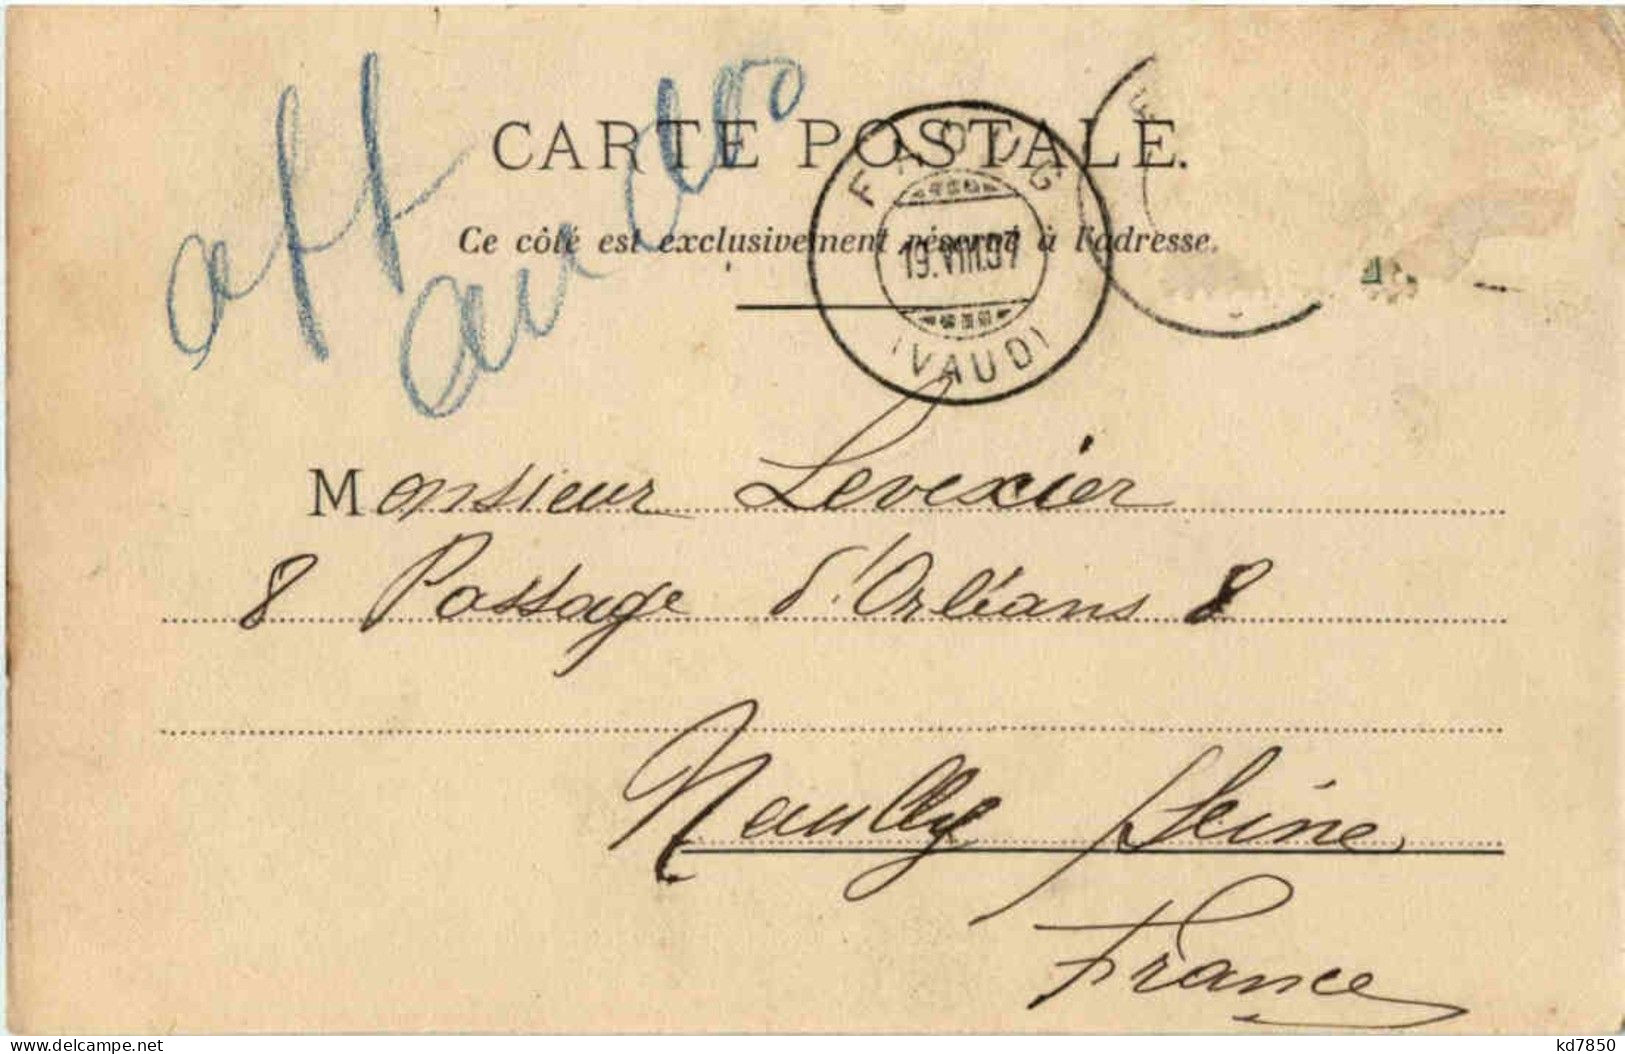 CARTE POSTALE.
Ce côté est exclusivement réservé à l'adresse.
FAOUG
19.VIII.07
(VAUD)
Monsieur Levexier
8 Passage d'Orléans 8
Neuilly Seine
France
www.delcampe.net
kd7850